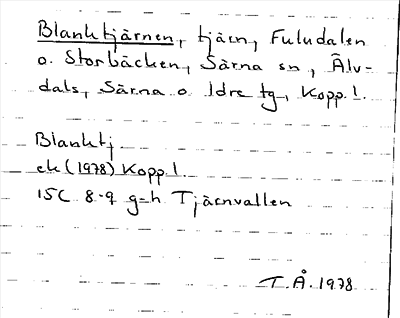 Blanktjärnen, tjärn, Fuludalen
o. Storbäcken, Särna sn, Älv-
dals, Särna o. Idre tg, Kopp. l.
Blanktj
ek (1978) Kopp. l.
15C 8-9 g-h Tjärnvallen
T.Å. 1978